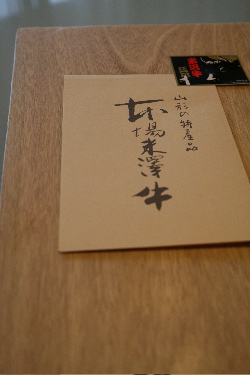 山形の特産品
本場米澤牛